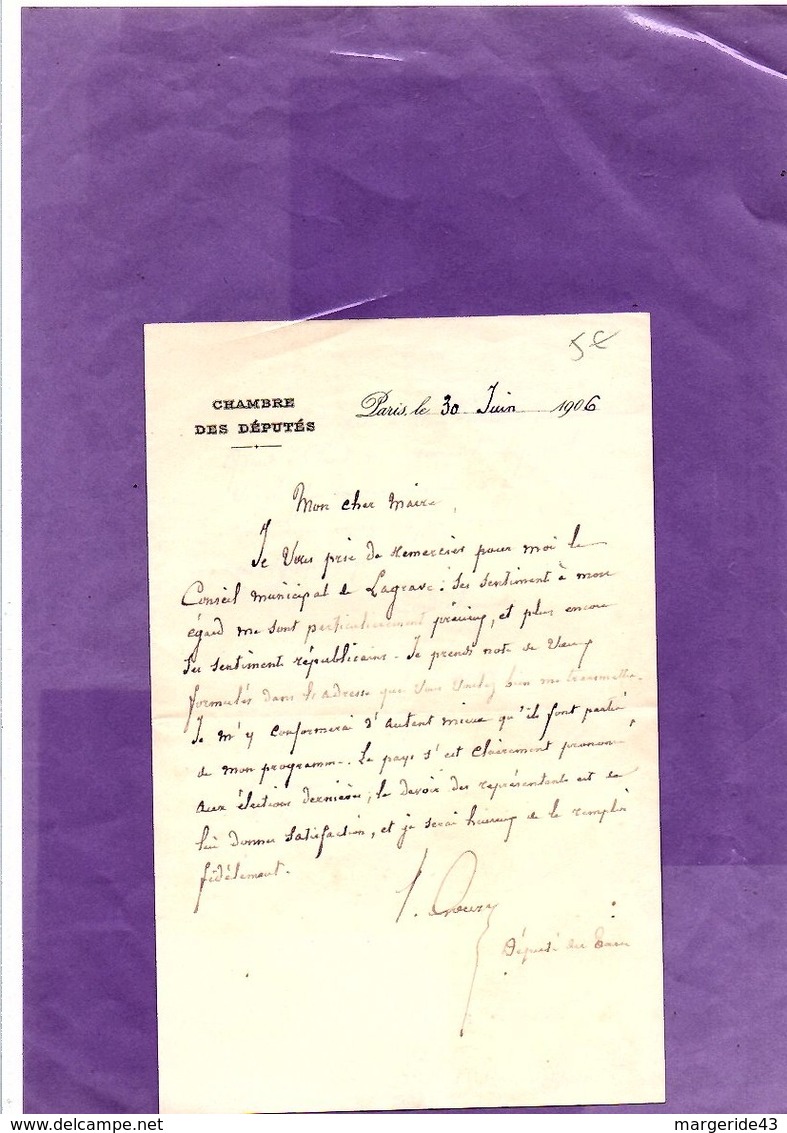 5€
CHAMBRE
DES DÉPUTÉS
Paris, le 30 Juin 1906
Mon cher Maire,
Je vous prie de remercier pour moi le
Conseil municipal de Lagrave : ses sentiment à mon
égard me sont particulièrement précieux, et plus encore
ses sentiments républicains. Je prends note de vœux
formulés dans l'adresse que vous voulez bien me transmettre.
Je m'y conformerai d'autant mieux qu'ils font partie
de mon programme. Le pays s'est clairement prononcé
aux élections dernières ; le devoir des représentants est de
lui donner satisfaction, et je serai heureux de le remplir
fidèlement.
Député du Tarn
www.delcampe.net
margeride43